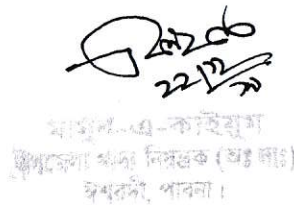 ২২/১১/২০
মামুন-এ-কাইয়ুম
উপজেলা খাদ্য নিয়ন্ত্রক (অঃ দাঃ)
ঈশ্বরদী, পাবনা।